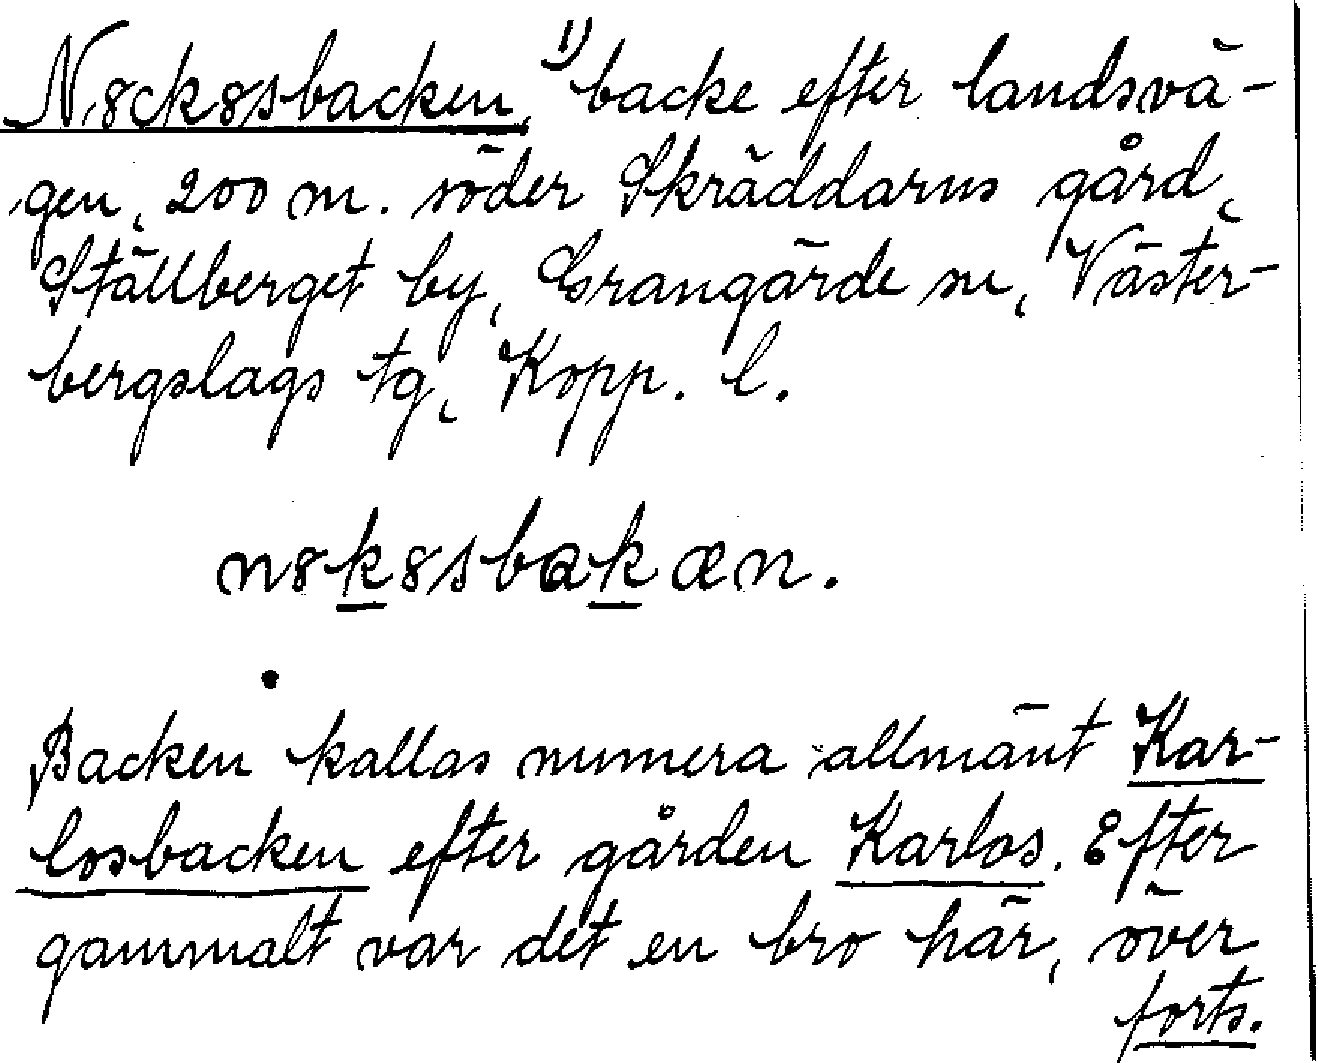 N8ck8sbacken, 1) backe efter landsvä-
gen, 200 m. söder Skräddarns gård,
Ställberget by, Grangärde sn, Väster-
bergslags tg, Kopp. l.
n8k8sbakæn.
Backen kallas numera allmänt Kar-
losbacken efter gården Karlos. Efter
gammalt var det en bro här, över
forts.